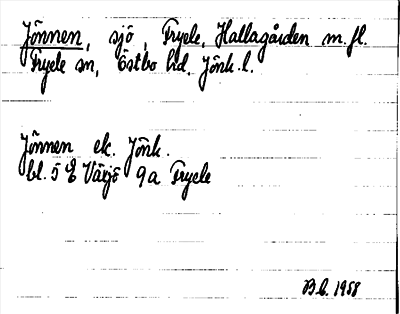 Jönnen, sjö, Fryele, Hallagården m.fl.
Fryele sn, Östbo hd, Jönk. l.
Jönnen ek. Jönk.
bl. 5 E Växjö 9a Fryele
B.C. 1958